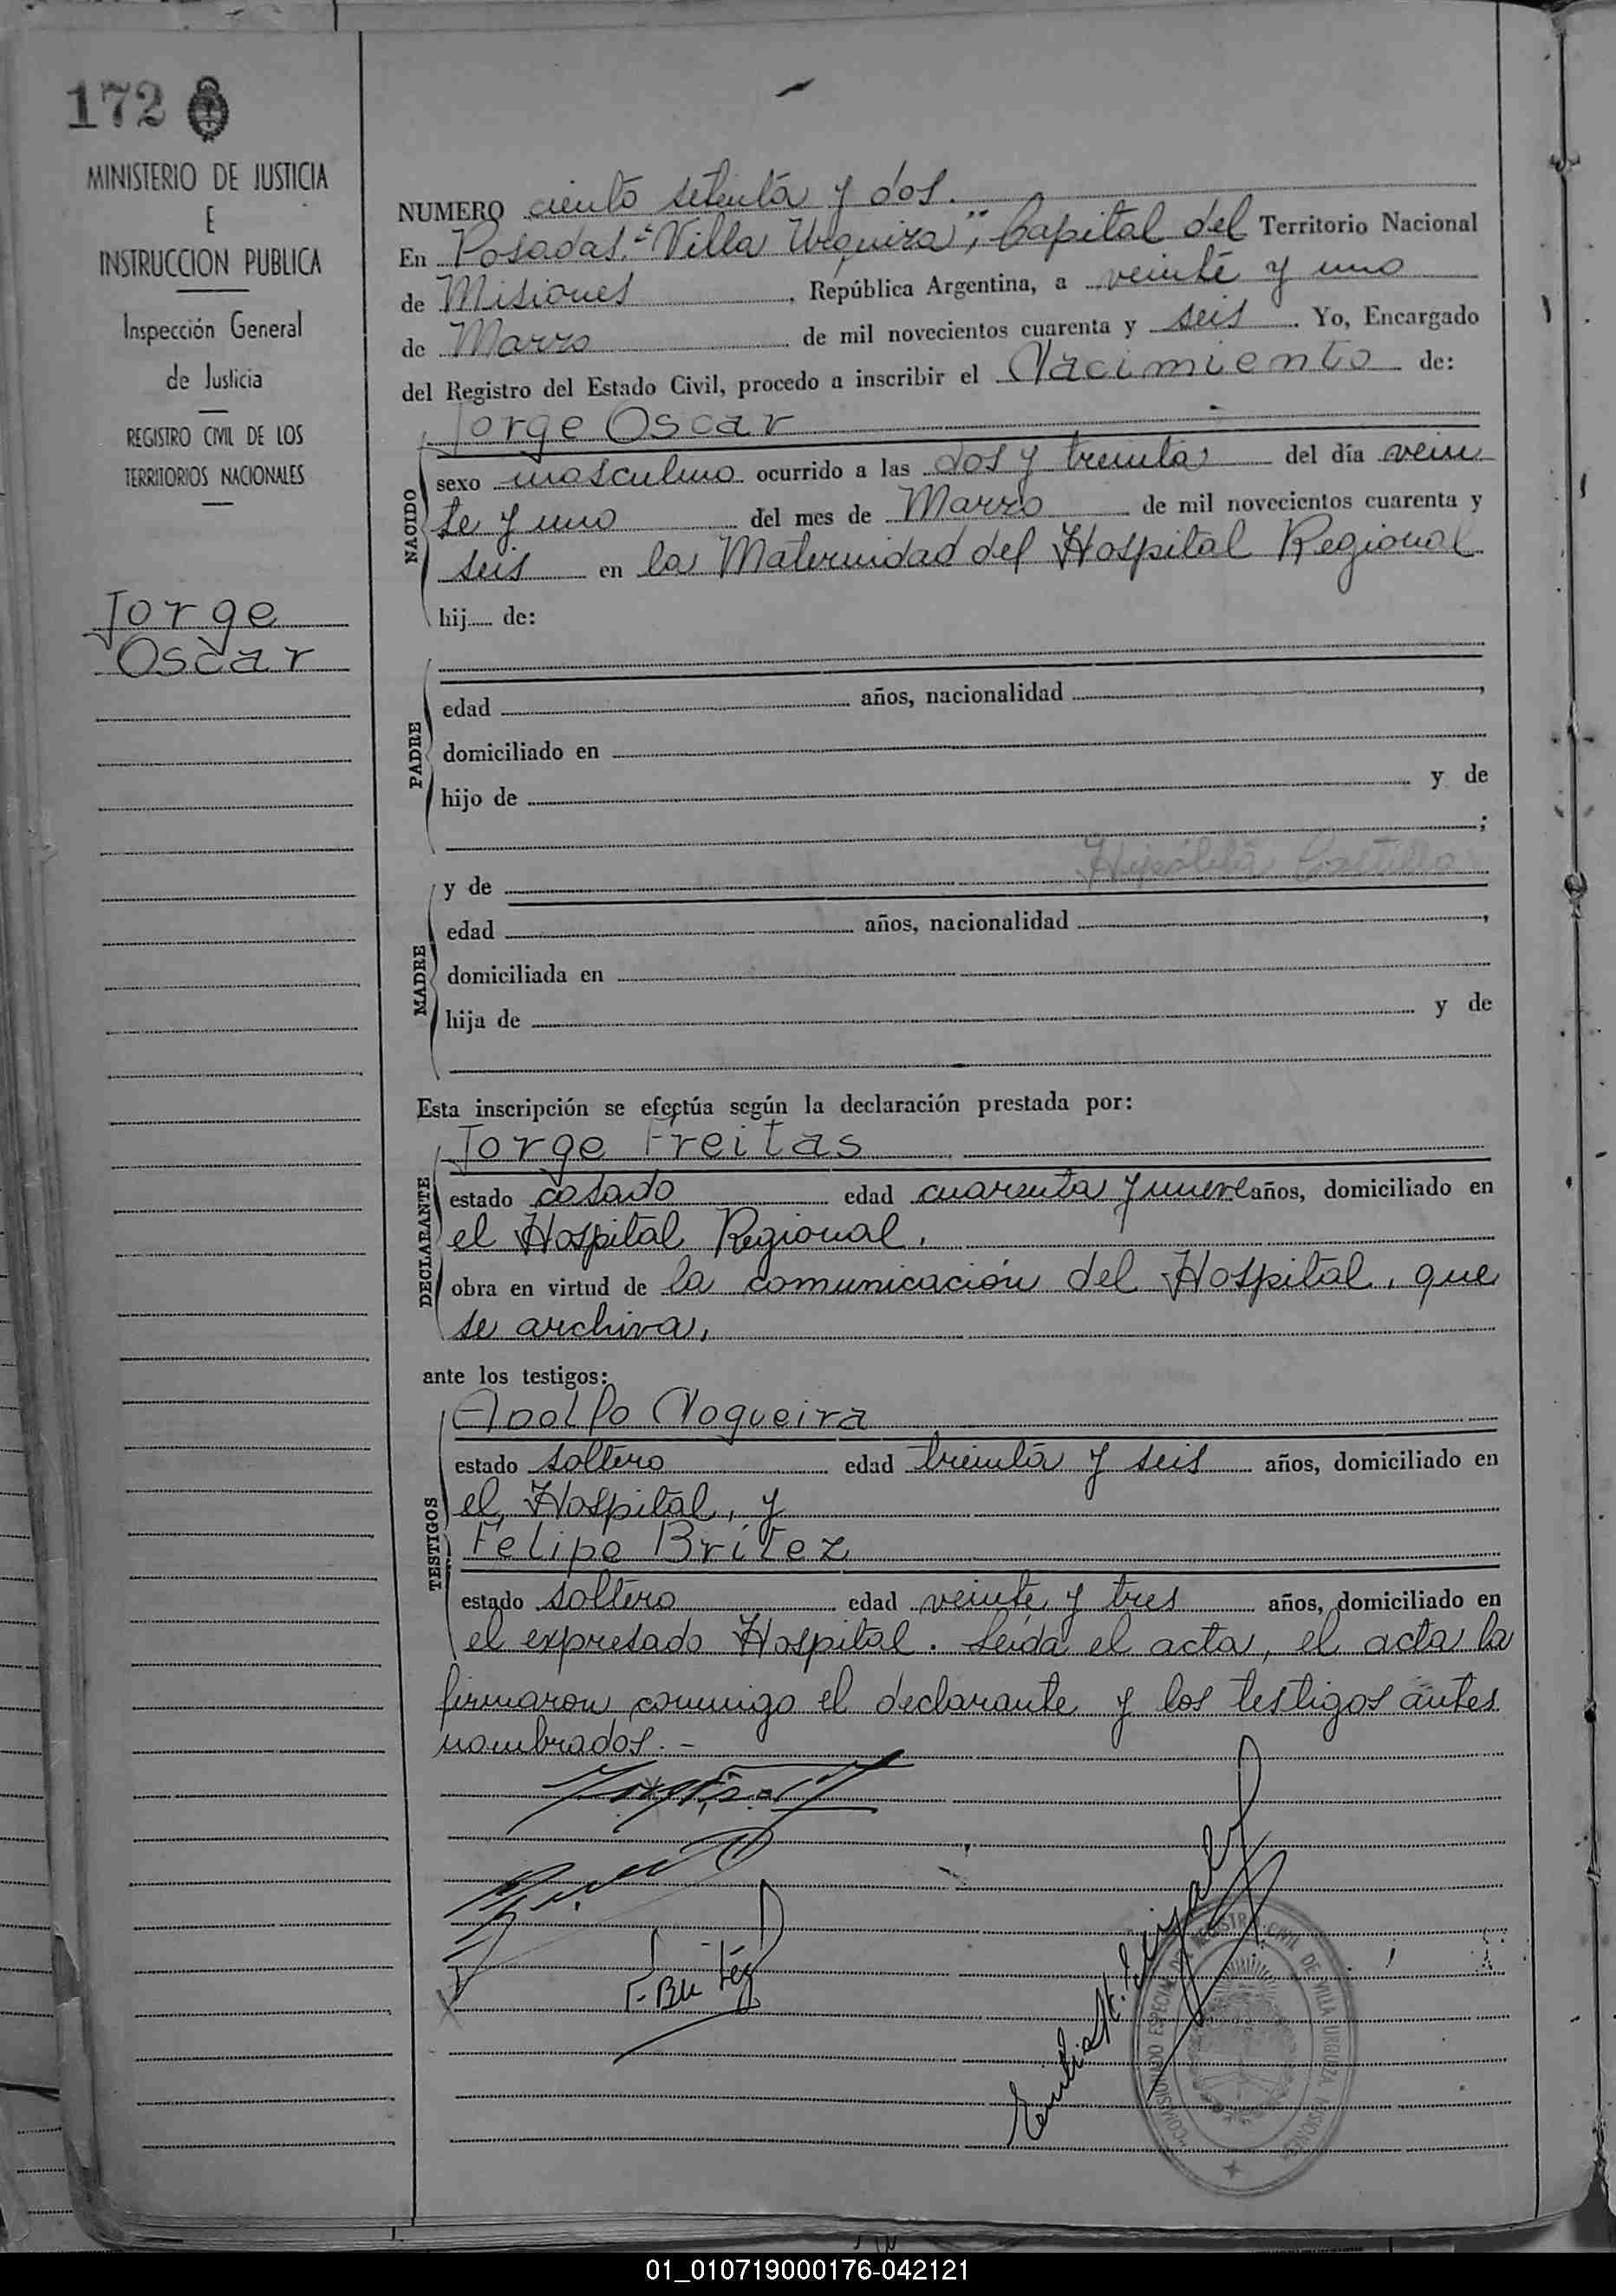 172
MINISTERIO DE JUSTICIA
E
INSTRUCCION PUBLICA
Inspección General
de Justicia
REGISTRO CIVIL DE LOS
TERRITORIOS NACIONALES
Jorge
Oscar
NUMERO ciento setenta y dos.
En Posadas "Villa Urquiza", Capital del Territorio Nacional
de Misiones, República Argentina, a veinte y uno
de Marzo de mil novecientos cuarenta y seis. Yo, Encargado
del Registro del Estado Civil, procedo a inscribir el Nacimiento de:
Jorge Oscar
NACIDO
sexo masculino ocurrido a las dos y treinta del día vein
te y uno del mes de Marzo de mil novecientos cuarenta y
seis en la Maternidad del Hospital Regional
hij de:
PADRE
edad años, nacionalidad ,
domiciliado en
hijo de y de
;
MADRE
y de Hipólita Castillo
edad años, nacionalidad ,
domiciliada en
hija de y de
Esta inscripción se efectúa según la declaración prestada por:
DECLARANTE
Jorge Freitas
estado casado edad cuarenta y nueve años, domiciliado en
el Hospital Regional.
obra en virtud de la comunicación del Hospital, que
se archiva.
ante los testigos:
TESTIGOS
Adolfo Nogueira
estado soltero edad treinta y seis años, domiciliado en
el Hospital, y
Felipe Britez
estado soltero edad veinte y tres años, domiciliado en
el expresado Hospital. Leída el acta, el acta la
firmaron conmigo el declarante y los testigos antes
nombrados.-
F. Britez
COMISIONADO ESPECIAL DE REGISTRO CIVIL DE VILLA URQUIZA MISIONES
01_010719000176-042121